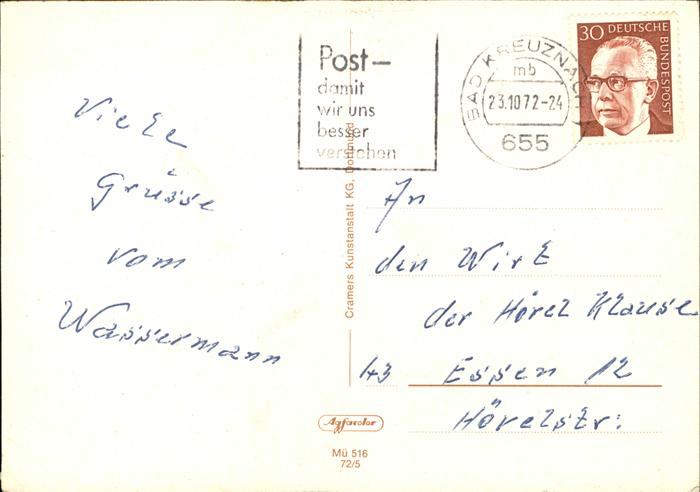 Post –
damit
wir uns
besser
verstehen
BAD KREUZNACH
mb
23.10.72-24
655
30 DEUTSCHE
BUNDESPOST
Viele
Grüsse
vom
Wassermann
Cramers Kunstanstalt KG, Dortmund
An
den Wirt
der Hövel Klause
43 Essen 12
Hövelstr:
Agfacolor
Mü 516
72/5